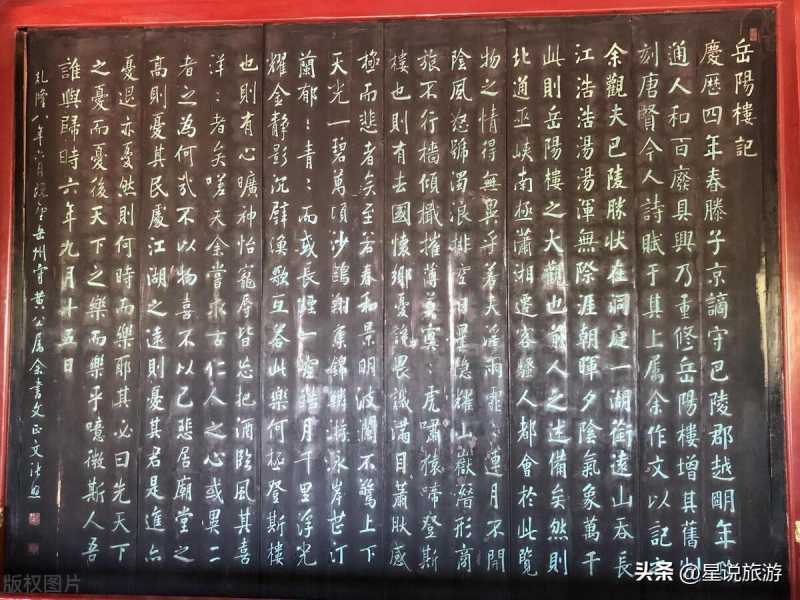 岳陽樓記
慶歷四年春滕子京謫守巴陵郡越明年
通人和百廢具興乃重修岳陽樓增其舊制
刻唐賢今人詩賦于其上属余作文以記之
余觀夫巴陵勝狀在洞庭一湖銜遠山吞長
江浩浩湯湯渾無際涯朝暉夕陰氣象萬千
此則岳陽樓之大觀也前人之述備矣然則
北通巫峽南極瀟湘遷客騷人都會於此覽
物之情得無異乎若夫淫雨霏:連月不開
陰風怒號濁浪排空日星隱耀山嶽潛形商
旅不行檣傾檝摧薄暮冥:虎嘯猿啼登斯
樓也則有去國懷鄉憂讒畏譏滿目蕭然感
極而悲者矣至若春和景明波瀾不驚上下
天光一碧萬頃沙鷗翔集錦鱗游泳岸芷汀
蘭郁:青:而或長煙一空皓月千里浮光
耀金靜影沉璧漁歌互答此樂何極登斯樓
也則有心曠神怡寵辱皆忘把酒臨風其喜
洋:者矣嗟夫余嘗求古仁人之心或異二
者之為何哉不以物喜不以己悲居廟堂之
高則憂其民處江湖之遠則憂其君是進亦
憂退亦憂然則何時而樂耶其必曰先天下
之憂而憂後天下之樂而樂乎噫微斯人吾
誰與歸時六年九月十五日
乾隆八年六月岳州守黃公属余書文張照
版权图片
头条 @星说旅游